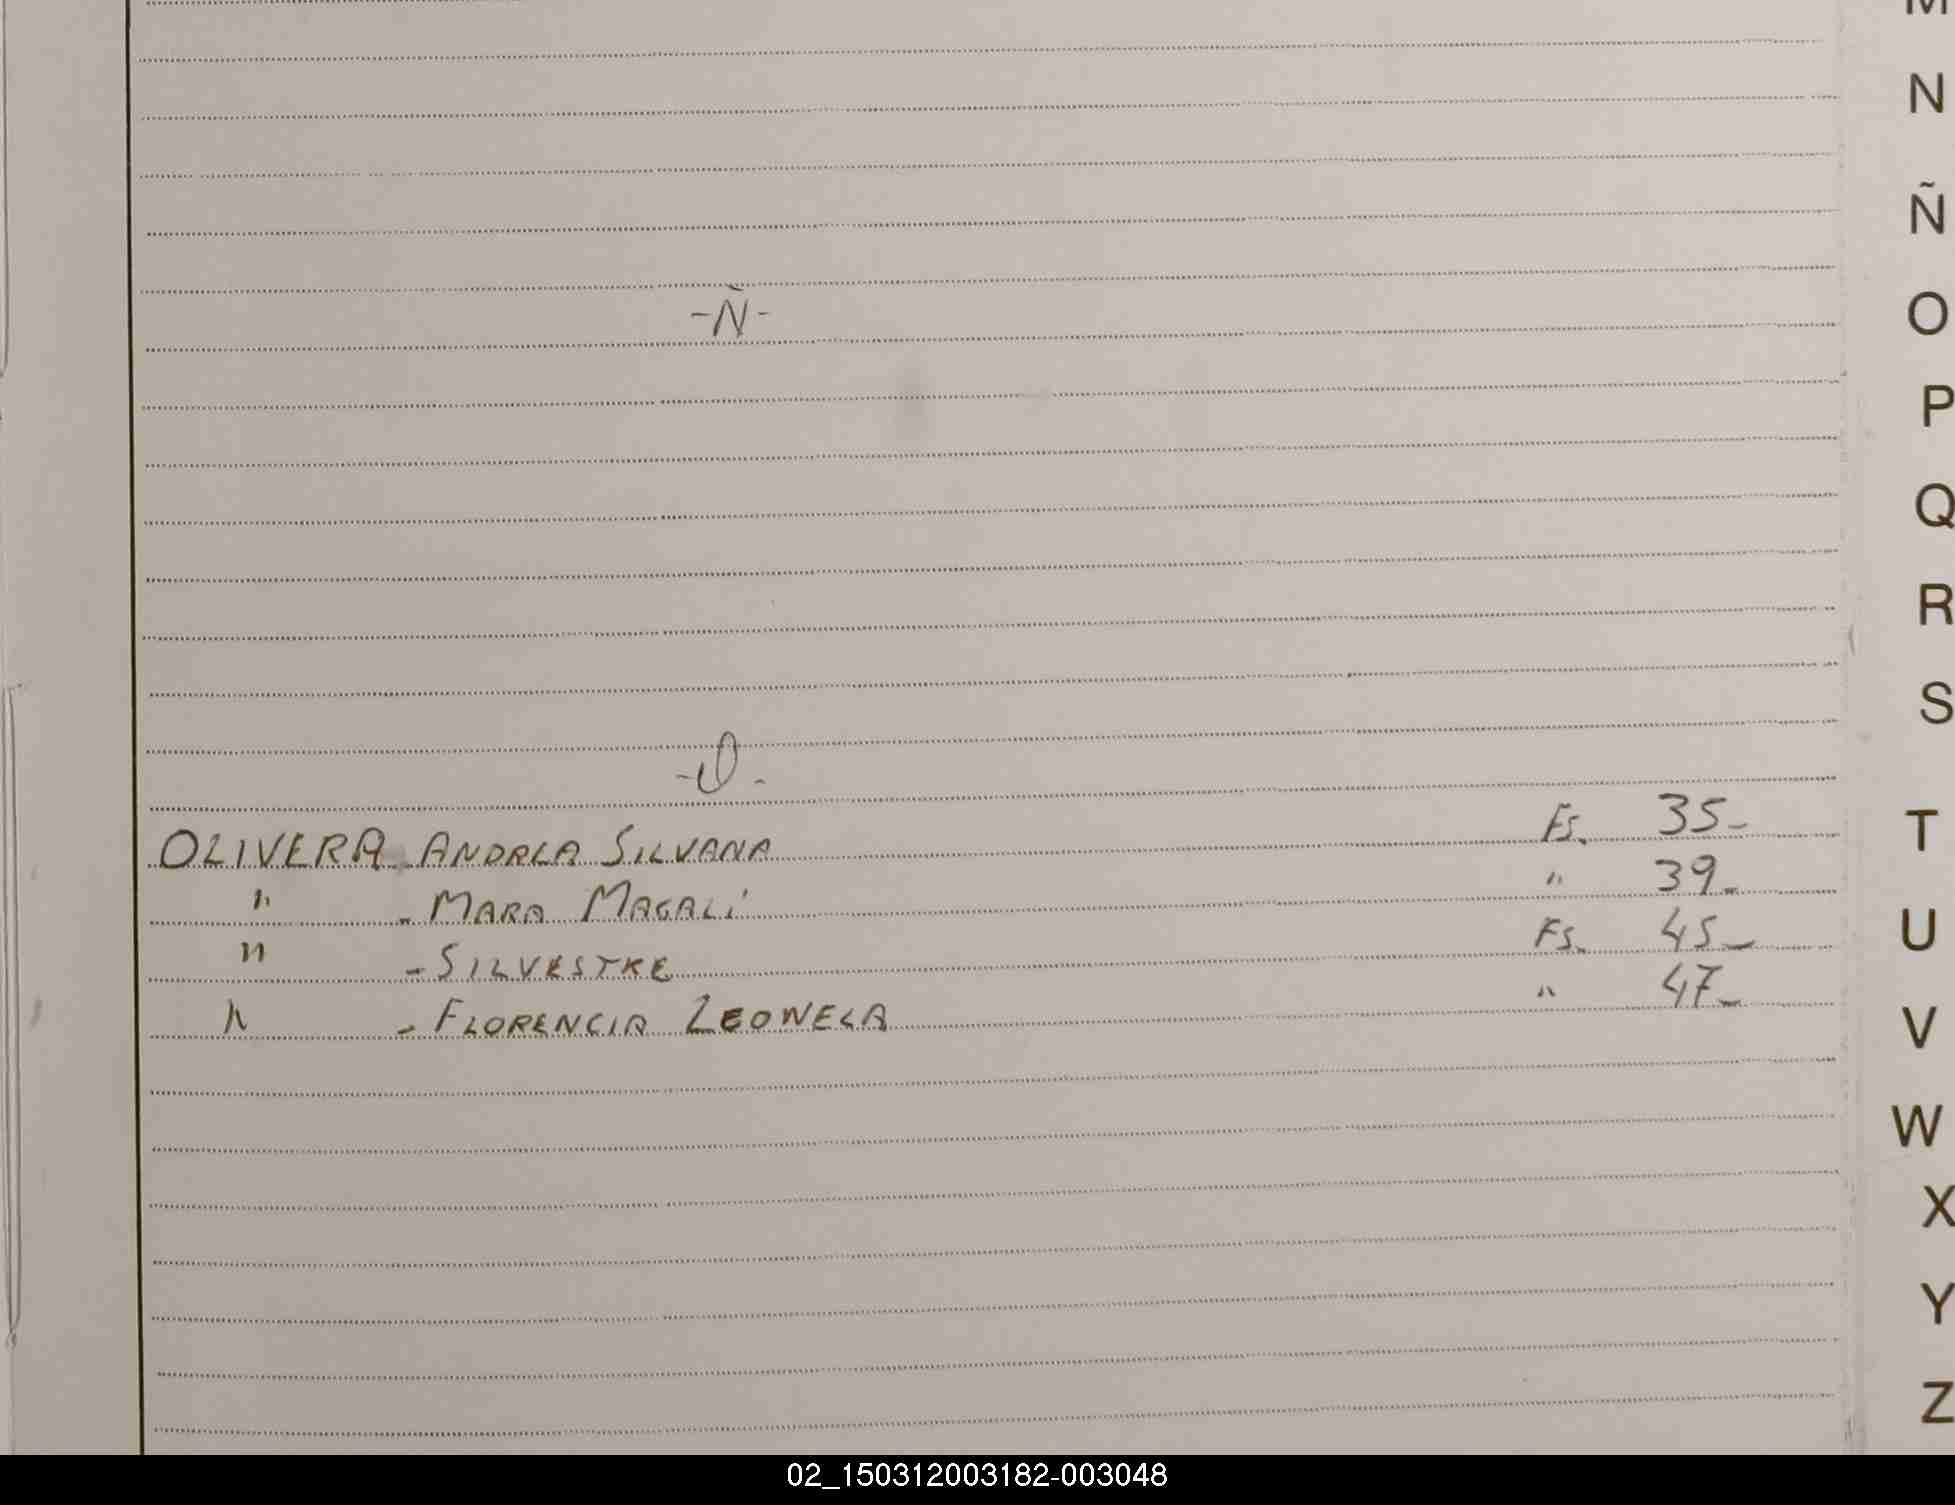 M
N
Ñ
-Ñ-
O
P
Q
R
S
-O-
OLIVERA ANDREA SILVANA Fs. 35-
" - MARA MAGALÍ " 39-
" - SILVESTRE Fs. 45-
" - FLORENCIA LEONELA " 47-
T
U
V
W
X
Y
Z
02_150312003182-003048